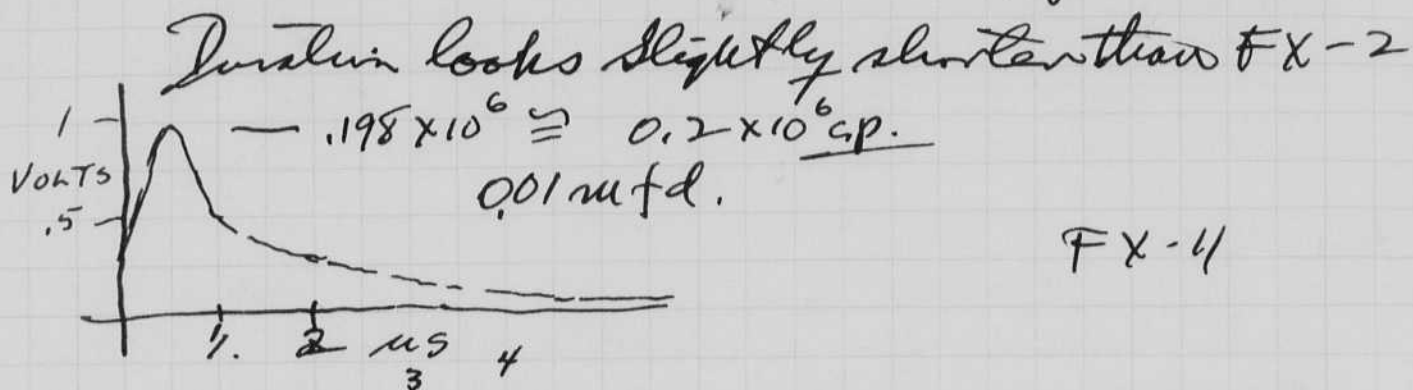 Duration looks slightly shorter than FX-2
1 — .198 x 10⁶ ≅ 0.2 x 10⁶ cp.
VOLTS
0.01 mfd.
.5
FX-11
1. 2 us 4
3